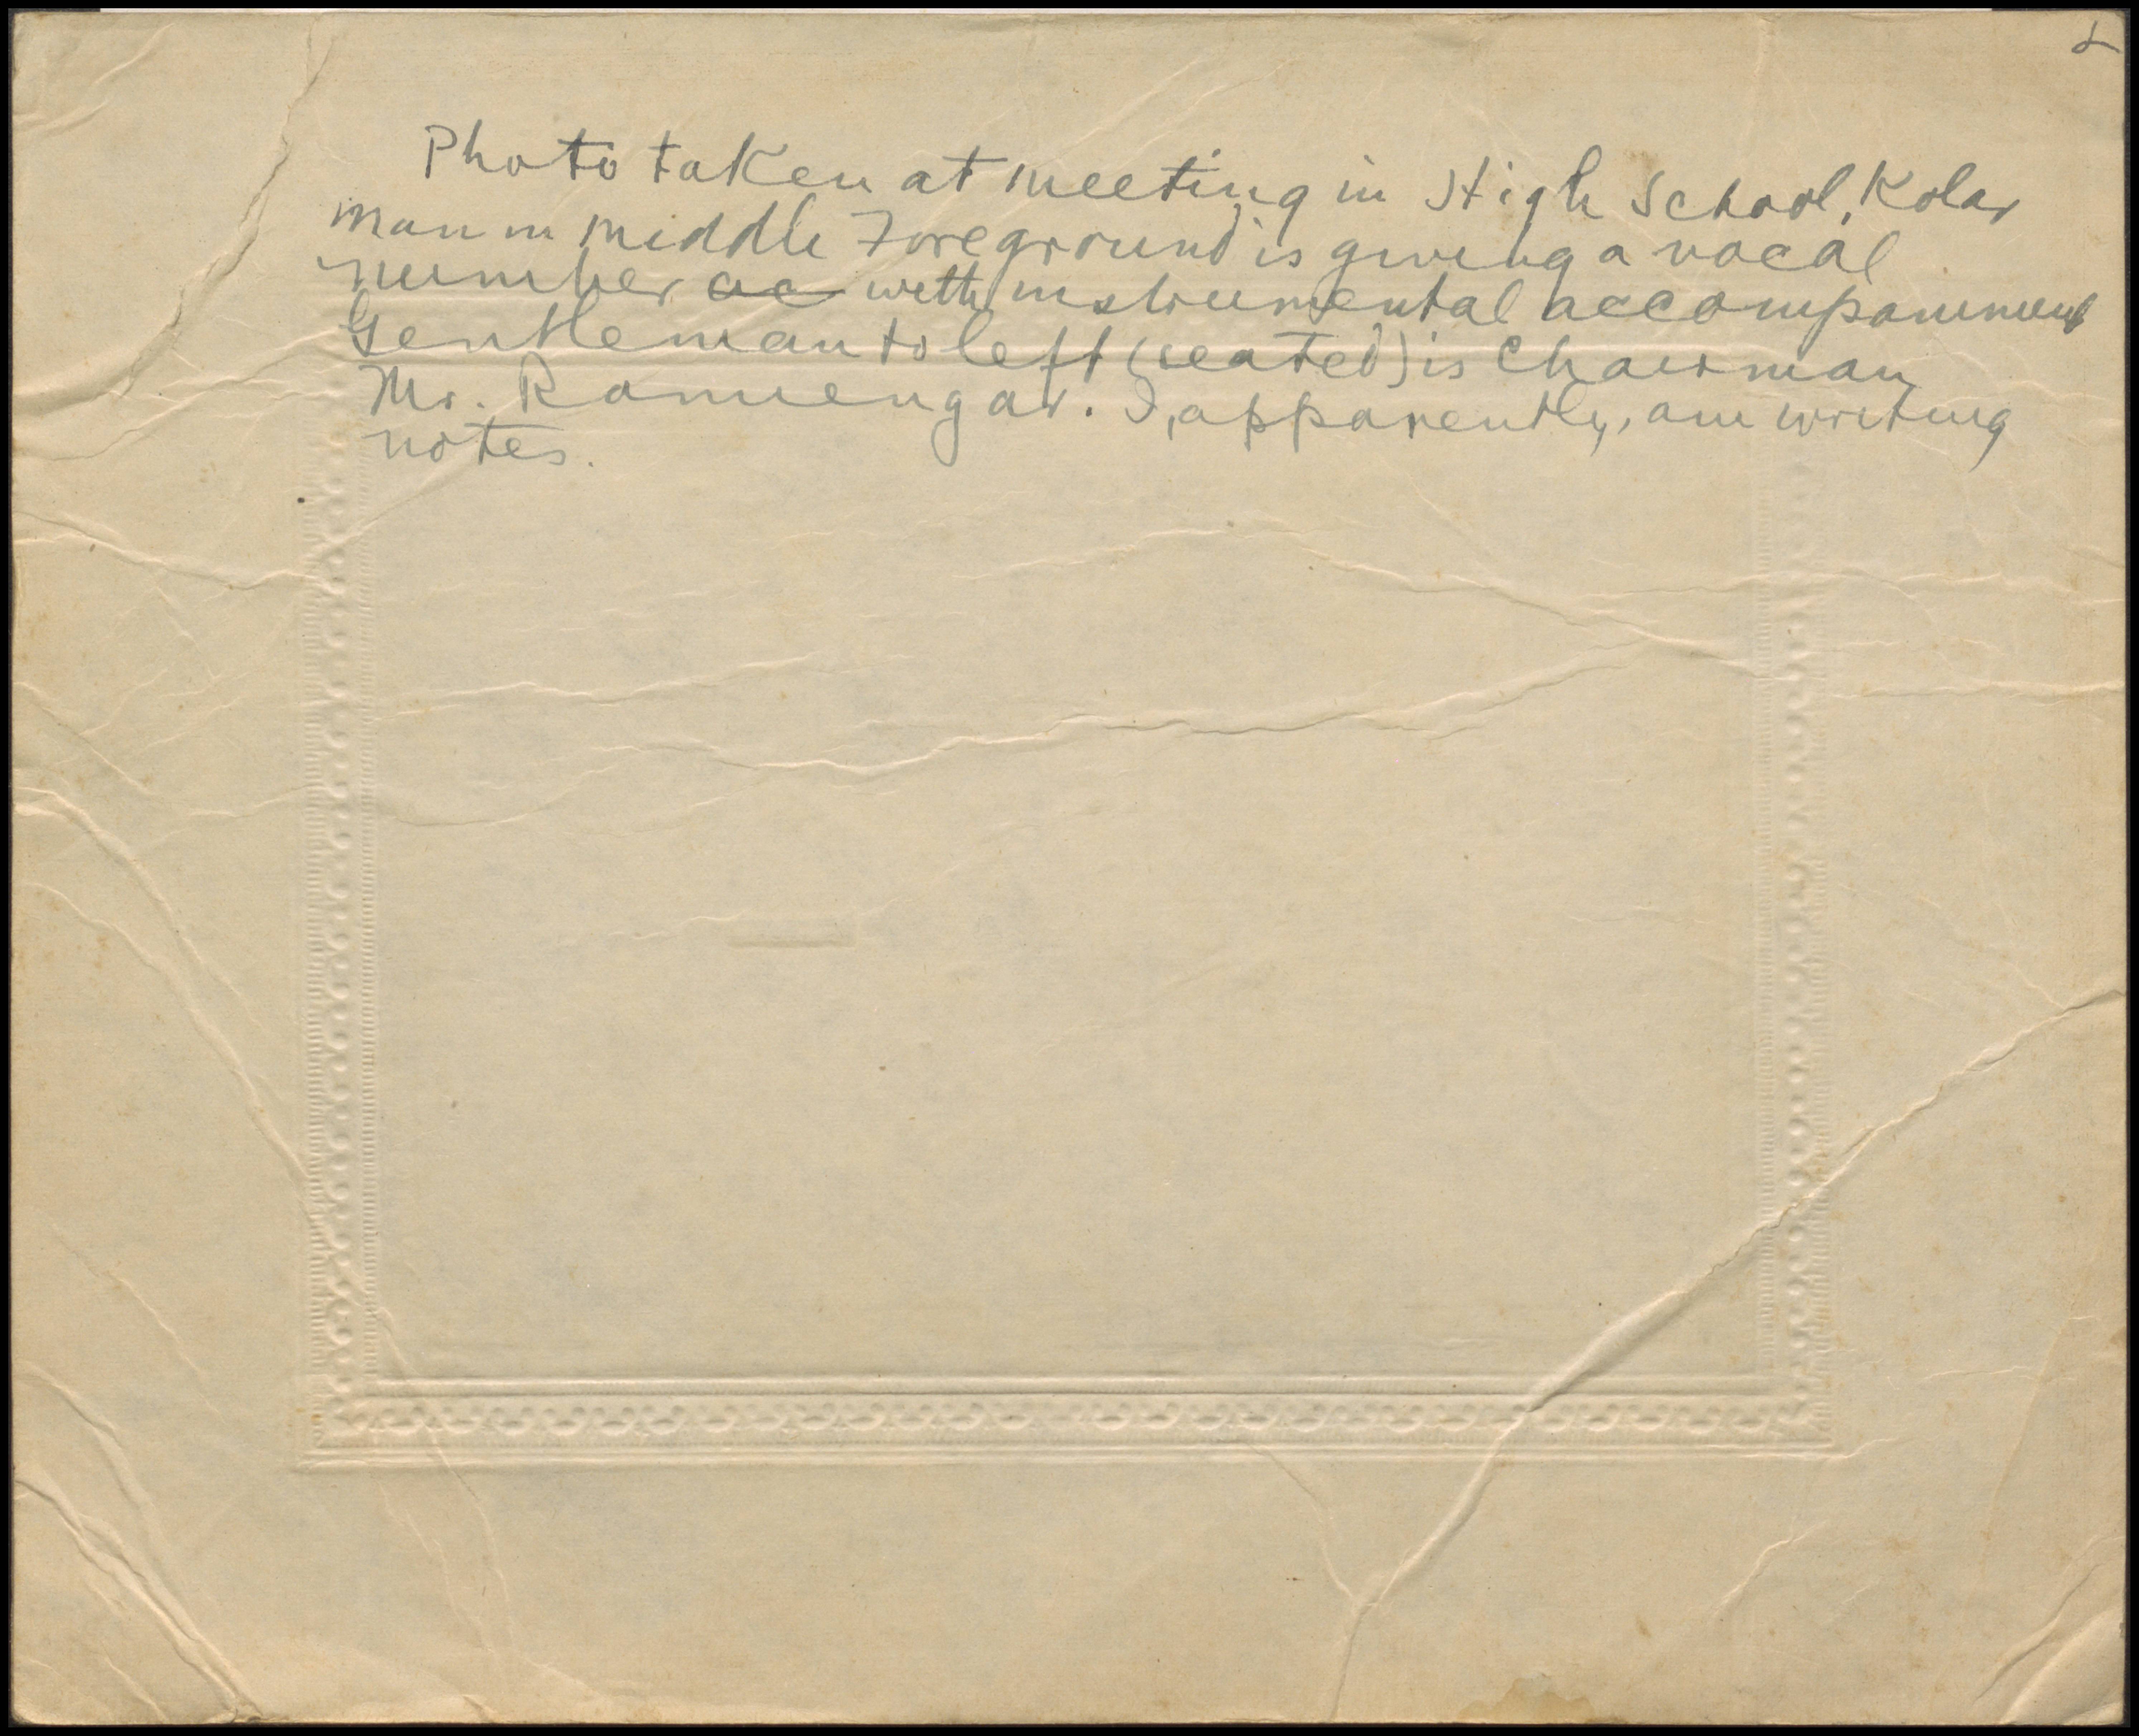 Photo taken at meeting in High School, Kolar
Man in middle Foreground is giving a vocal
number ac with instrumental accompaniment
Gentleman to left (seated) is Chairman
Mr. Ramiengar. I, apparently, am writing
notes.